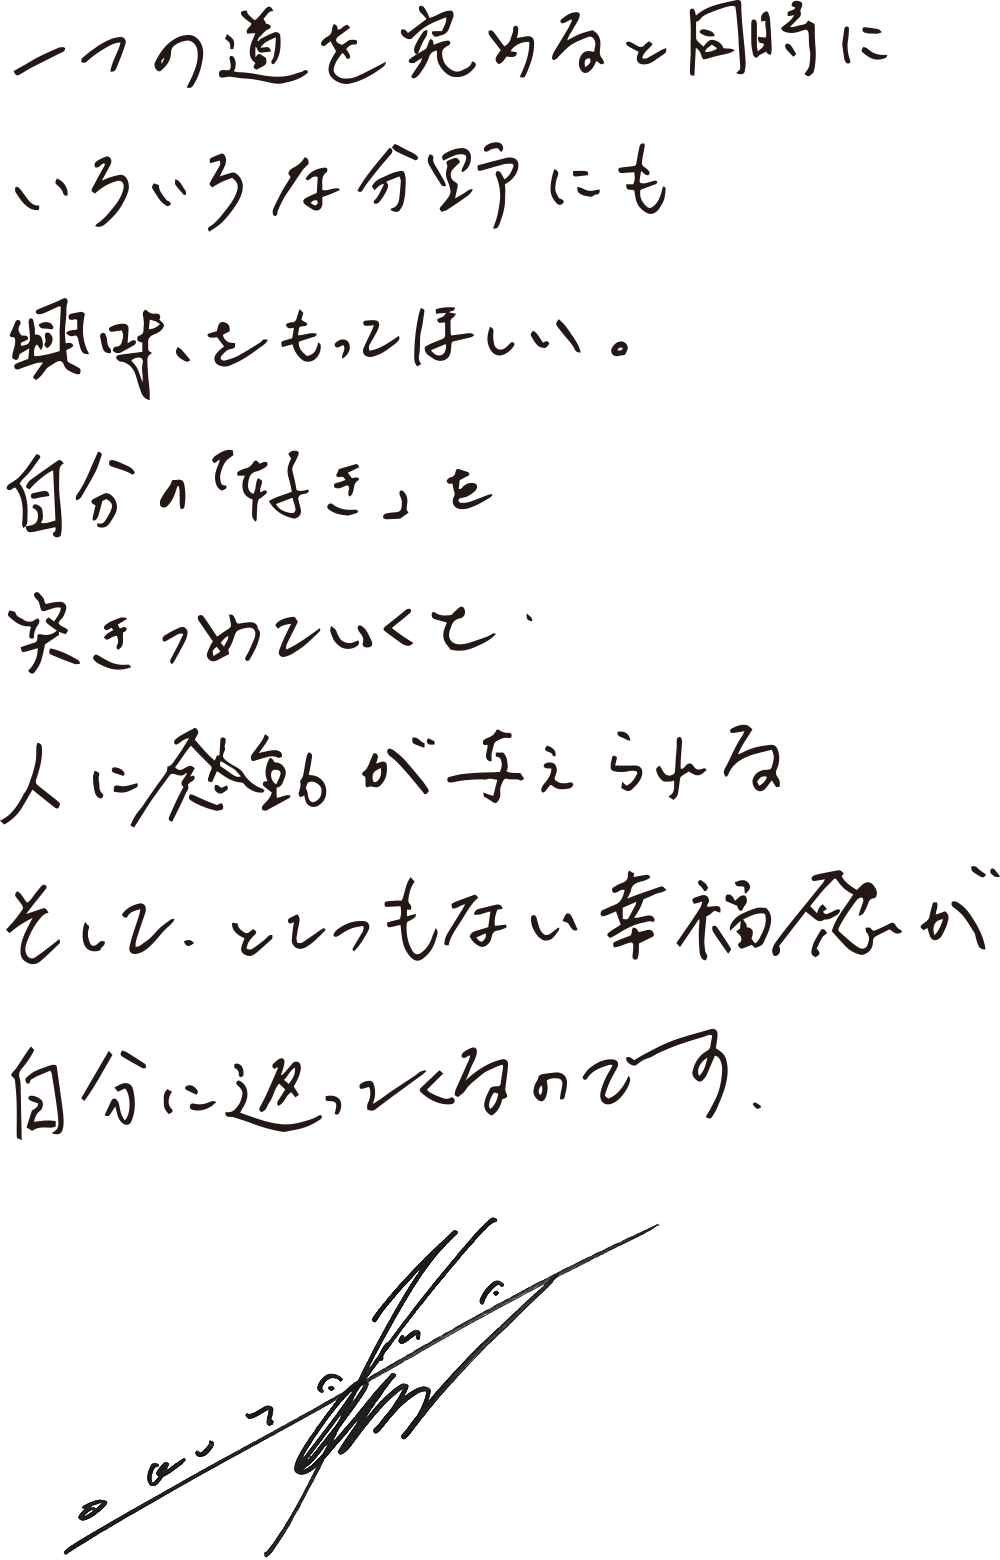 一つの道を究めると同時に
いろいろな分野にも
興味をもってほしい。
自分の「好き」を
突きつめていくと
人に感動が与えられる
そして、とてつもない幸福感が
自分に返ってくるのです.